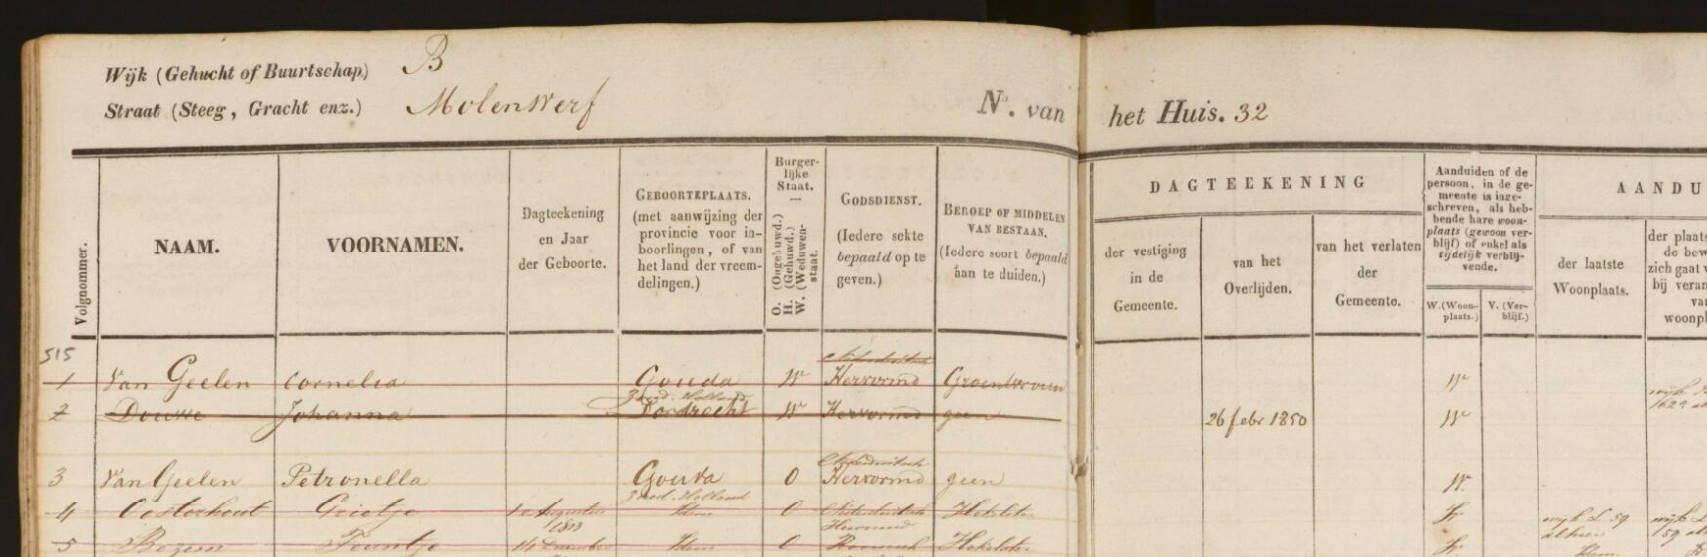 Wijk (Gehucht of Buurtschap) B
Straat (Steeg, Gracht enz.) Molenwerf
No. van het Huis. 32
Volgnommer.
NAAM.
VOORNAMEN.
Dagteekening
en Jaar
der Geboorte.
GEBOORTEPLAATS.
(met aanwijzing der
provincie voor in-
boorlingen, of van
het land der vreem-
delingen.)
Burger-
lijke
Staat.
O. (Ongehuwd.)
H. (Gehuwd.)
W. (Weduwen-
staat.
GODSDIENST.
(Iedere sekte
bepaald op te
geven.)
BEROEP OF MIDDELEN
VAN BESTAAN.
(Iedere soort bepaald
aan te duiden.)
DAGTEEKENING
der vestiging
in de
Gemeente.
van het
Overlijden.
van het verlaten
der
Gemeente.
Aanduiden of de
persoon, in de ge-
meente is inge-
schreven, als heb-
bende hare woon-
plaats (gewoon ver-
blijf) of enkel als
tijdelijk verblij-
vende.
W. (Woon-
plaats.)
V. (Ver-
blijf.)
AANDU
der laatste
Woonplaats.
der plaats
de bew
zich gaat v
bij veran
va
woonpl
515
1 Van Geelen Cornelia Gouda W Hervormd W
Zuid. Holland
2 Douwe Johanna Dordrecht W Hervormd geen 26 febr 1850 W
Nederduitsch
3 Van Geelen Petronella Gouda O Hervormd geen W
Zuid. Holland
4 Oosterhout Grietje Augustus Idem O Nederduitsch wijk L 59
1813 Hervormd
5 14 December Idem O Idem